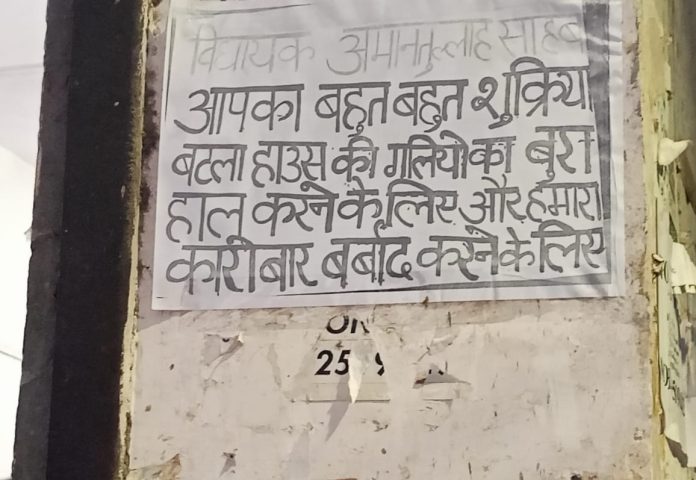 विधायक अमानतुल्लाह साहब
आपका बहुत बहुत शुक्रिया
बटला हाउस की गलियो का बुरा
हाल करने के लिए और हमारा
कारोबार बर्बाद करने के लिए
25 9